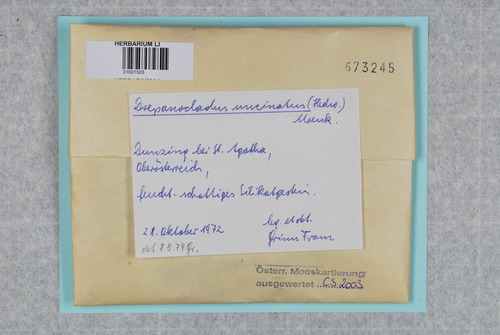 HERBARIUM LI
01601503
673245
Drepanocladus uncinatus (Hedw.)
Warnst.
bei St. Agatha,
Oberösterreich,
feucht-schattiges Silikatgestein.
28. Oktober 1972
leg. et det.
Grims Franz
det 8.5.74 Gr.
Österr. Mooskartierung
ausgewertet CS 2005